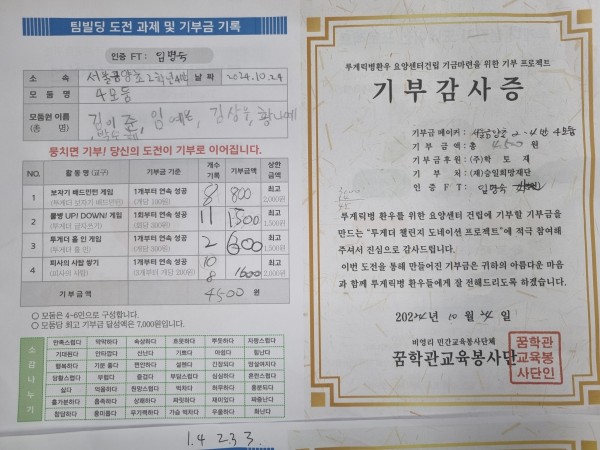 팀빌딩 도전 과제 및 기부금 기록
인증 FT : 임명숙
소 속 서울공양초 2학년4반 날 짜 2024.10.24
모 둠 명 4모둠
모둠원 이름 김이준, 임예, 김상우, 황나예
(총 명)
뭉치면 기부! 당신의 도전이 기부로 이어집니다.
NO 활 동 명 (교구) 기부금 기준 개수 기록 기부 금액 상한 금액
1 보자기 배드민턴 게임 (투게더 보자기 배드민턴) 1개부터 연속 성공 (개당 100원) 8 800 최고 2,000원
2 볼병 UP! DOWN! 게임 (투게더 글자쓰기) 1회부터 연속 성공 11 1500 최고
3 투게더 홀 인 게임 (투게더 홀 인) 1개부터 연속 성공 2 600 최고
4 피사의 사탑 쌓기 (피사의 사탑) 1개부터 연속 성공 (3개부터 개당 200원) 10 8 1600 최고 2,000원
기 부 금 액 4500 원
○ 모둠은 4~6인으로 구성합니다.
○ 모둠당 최고 기부금 달성액은 7,000원입니다.
소 감 나 누 기
만족스럽다 막막하다 속상하다 흐뭇하다 뿌듯하다 자랑스럽다
기대된다 안타깝다 신난다 기쁘다 아쉽다 힘난다
행복하다 기분 좋다 편안하다 설렌다 긴장되다 망설여지다
당황스럽다 부럽다 즐겁다 부담스럽다 심심하다 혼란스럽다
싫다 억울하다 원망스럽다 벅차다 허무하다 흥분되다
홀가분하다 흡족하다 상쾌하다 짜릿하다 재미있다 짜증난다
참담하다 흥미롭다 무기력하다 가슴 벅차다 우울하다 화난다
1.4 2.3 3.
루게릭병환우 요양센터건립 기금마련을 위한 기부 프로젝트
기부감사증
기부금 메이커 : 서울공양초 2-4반 4모둠
기 부 금 액 : 총 4500 원
기부금후원 : (주)학 토 재
기 부 처 : (재)승일희망재단
인 증 FT : 임명숙
루게릭병 환우를 위한 요양센터 건립에 기부할 기부금을
만드는 "투게더 챌린지 도네이션 프로젝트"에 적극 참여해
주셔서 진심으로 감사드립니다.
이번 도전을 통해 만들어진 기부금은 귀하의 아름다운 마음
과 함께 루게릭병 환우들에게 잘 전해드리도록 하겠습니다.
2024년 10월 24일
비영리 민간교육봉사단체
꿈학관교육봉사단
꿈학관
교육봉
사단인